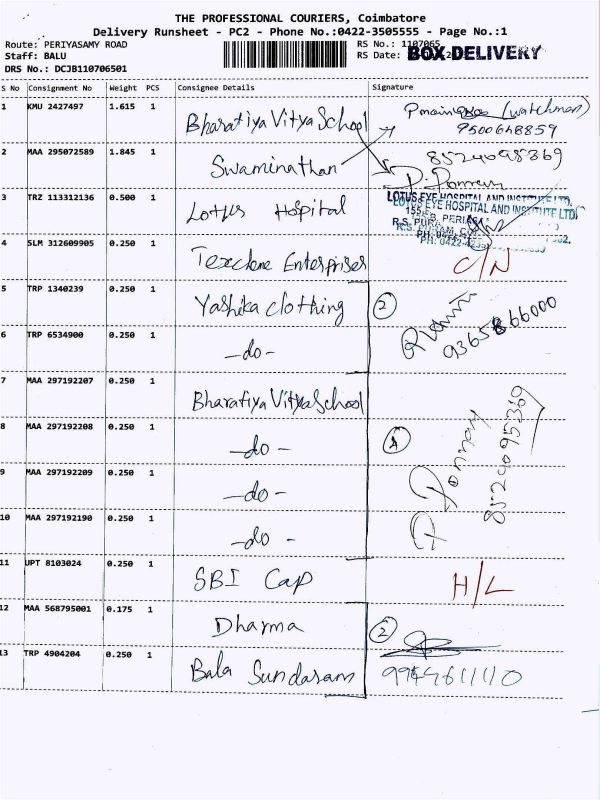 THE PROFESSIONAL COURIERS, Coimbatore
Delivery Runsheet - PC2 - Phone No.:0422-3505555 - Page No.:1
Route: PERIYASAMY ROAD
RS No.: 1107065
Staff: BALU
RS Date:
BOX DELIVERY
DRS No.: DCJB110706501
S No Consignment No Weight PCS Consignee Details Signature
1 KMU 2427497 1.615 1 Bharatiya Vitya School (watchman)
9500648859
2 MAA 295072589 1.845 1 Swaminathan 8524095369
3 TRZ 113312136 0.500 1 Lotus Hospital
LOTUS EYE HOSPITAL AND INSTITUTE LTD.
LOTUS EYE HOSPITAL AND INSTITUTE LTD.
4 SLM 312609905 0.250 1 Texclone Enterprises C/N
5 TRP 1340239 0.250 1 Yashika clothing 2
9365866000
6 TRP 6534900 0.250 1 -do-
7 MAA 297192207 0.250 1 Bharatiya Vitya School
8 MAA 297192208 0.250 1 -do- 4
8524095369
9 MAA 297192209 0.250 1 -do-
10 MAA 297192190 0.250 1 -do-
11 UPT 8103024 0.250 1 SBI Cap H/L
12 MAA 568795001 0.175 1 Dharma 2
13 TRP 4904204 0.250 1 Bala Sundaram